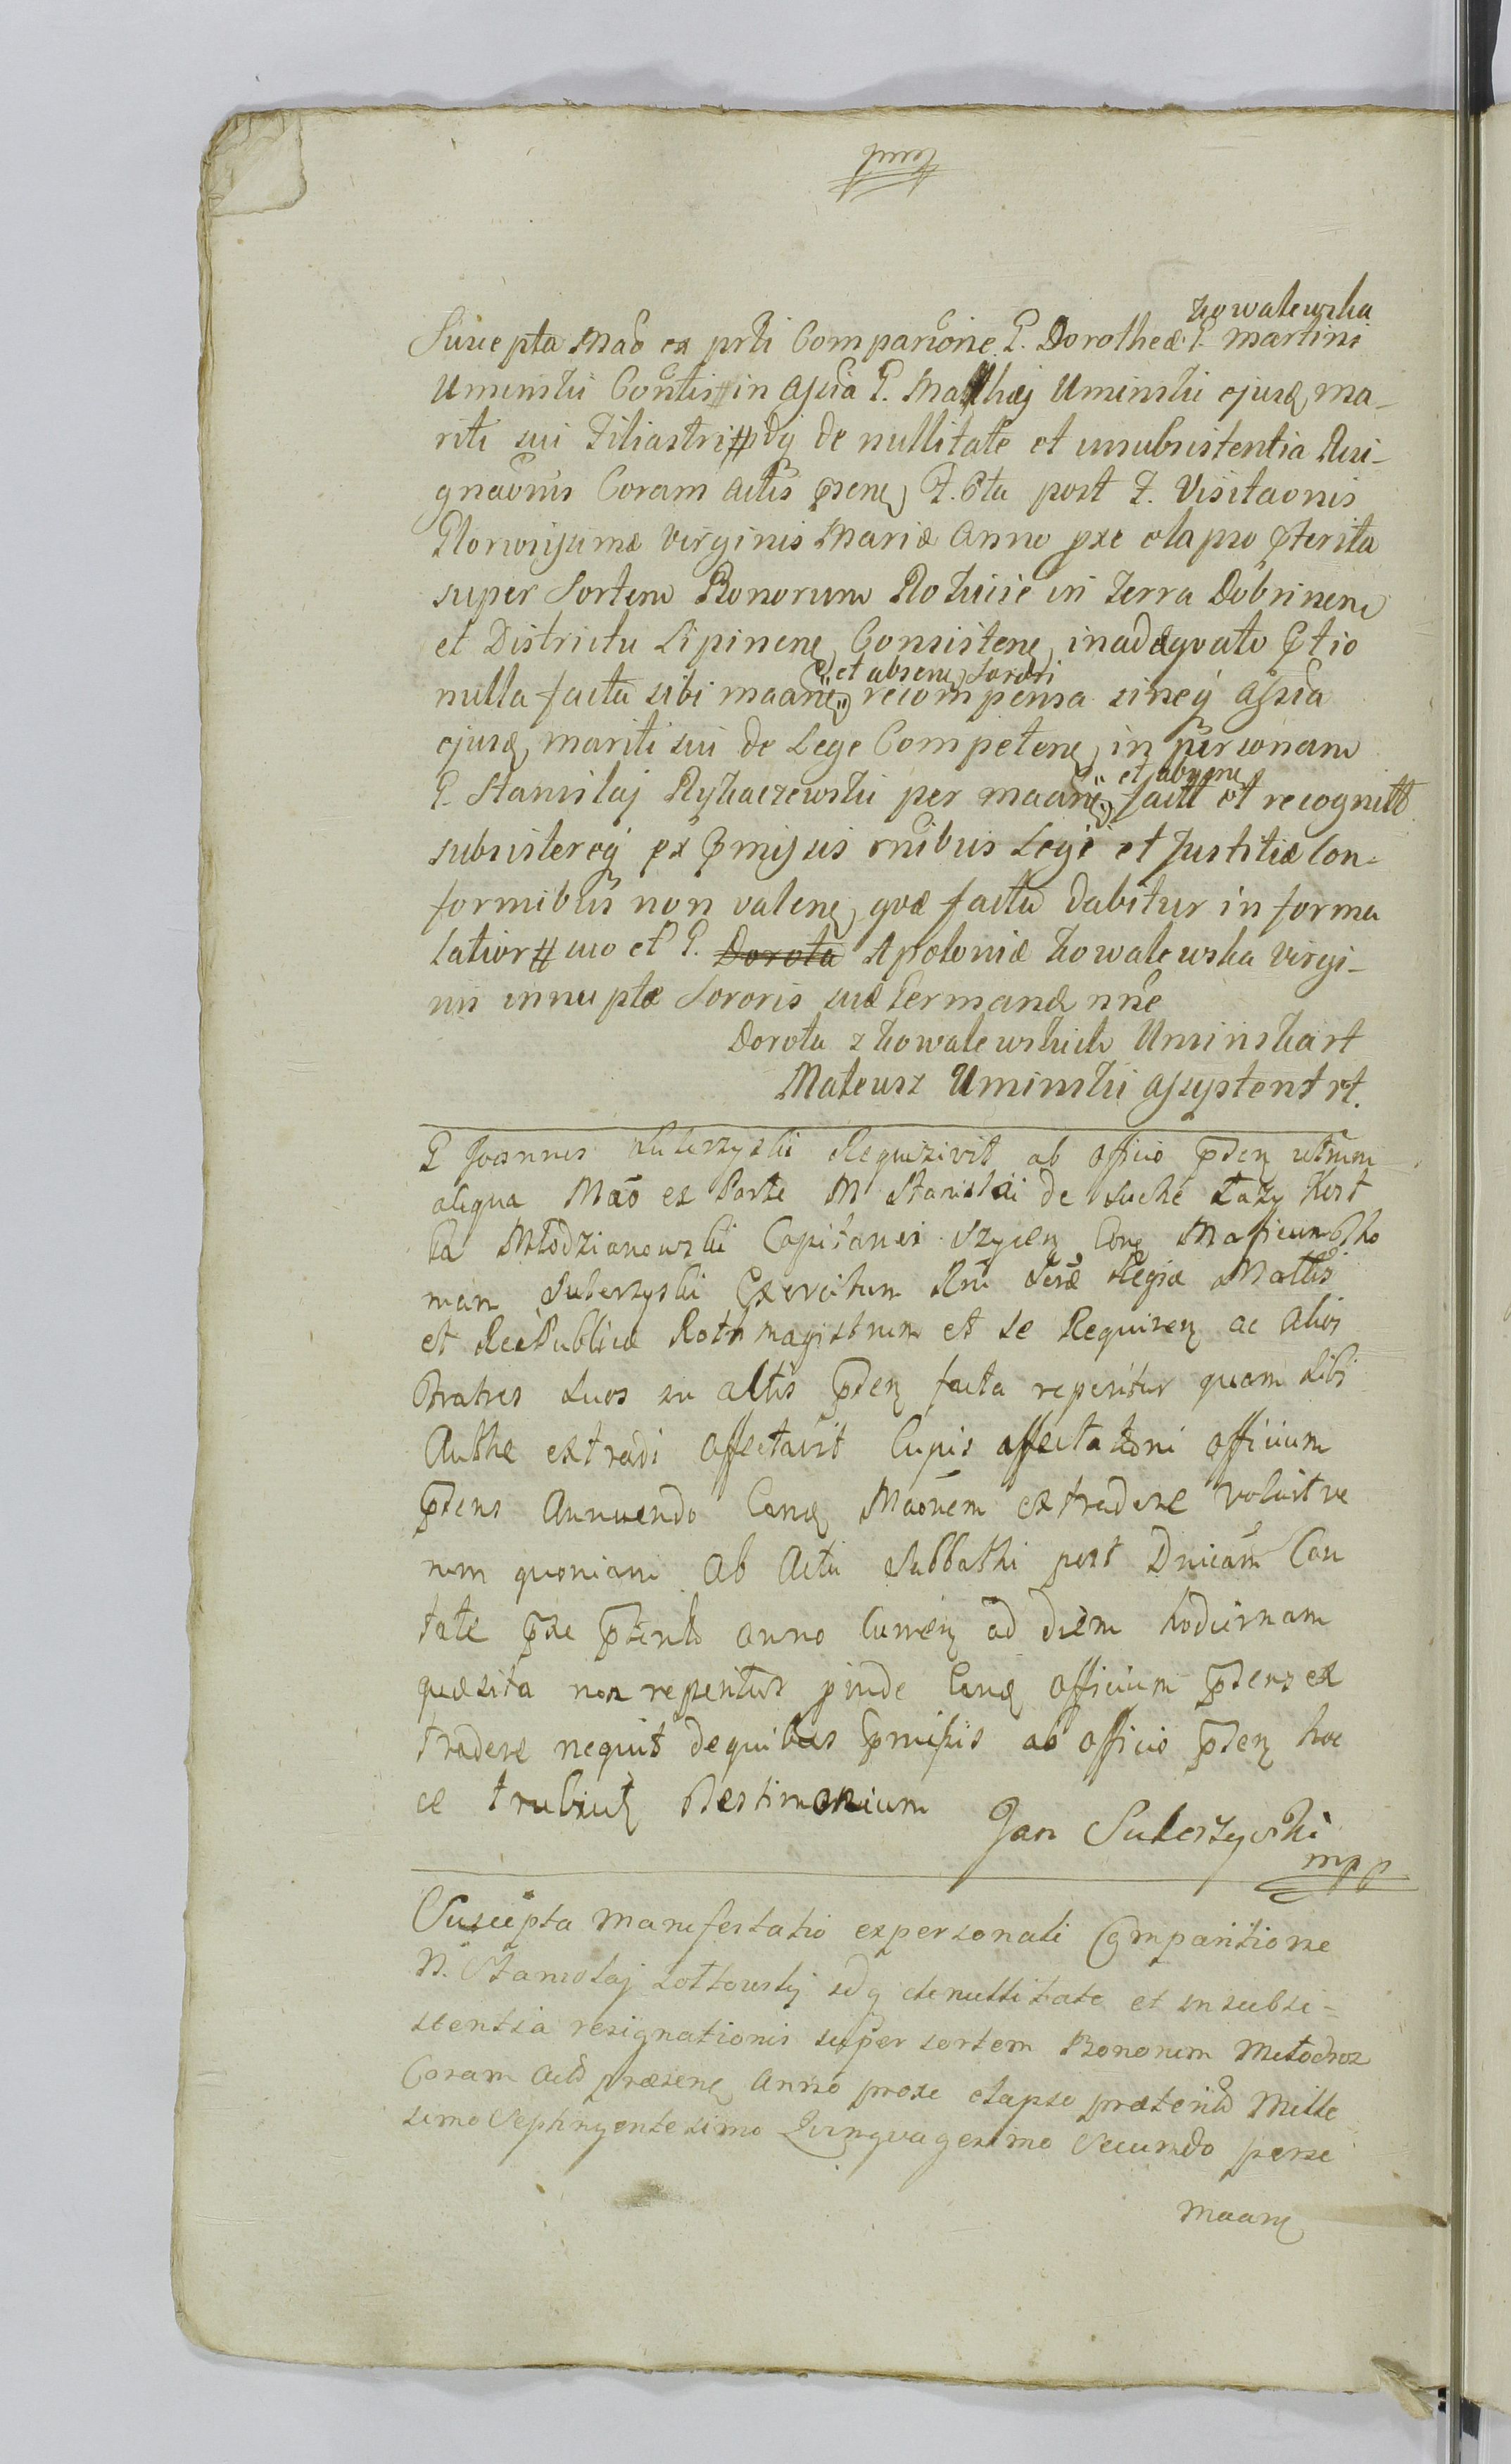 pmq
Kowalewska
Suscepta Mão ex prli Comparitione G. Dorotheæ G. Martini
Uminski Contis # in assia G. Matthæj Uminski ejusq ma-
riti sui Filiastri # idq de nullitate et insubsistentia Resi-
gnaonis Coram actis psenq F. 6ta post F. Visitaonis
Gloriosissimæ Virginis Mariæ Anno pxe elapso pterita
super Sortem Bonorum Rokicie in Terra Dobrinen
et Districtu Lipinenq Consistenq inadæqvato ptio
et absenq Sorori
nulla facta sibi maanti recompensa sineq assia
ejusq mariti sui de Lege Competenq in personam
et absenq
G. Stanislaj Rykaczewski per maante factt et recognitt
subsistereq ex pmissis omnibus Legi et Justitiæ Con-
formibus non valenq qvæ facta dabitur in forma
latior # suo et G. Dorota Apoloniæ Kowalewska virgi-
nis innuptæ Sororis suæ Germanæ nne
Dorota z Kowalewskich Uminska rt
Mateusz Uminski assystent rt.
G Joannes Sulerzyski Requisivit ab officio pten utrum
aliqua Mão ex Parte M Stanislai de Suche Łazy Kost
ka Młodzianowski Capitanei Szycen Conq Mafficum Tho
mam Sulerzyski Exercituum Rni Seræ Regiæ Mattis
et ReiPublicæ Rothmagistrum et se Requiren ac alios
Fratres suos in actis pten facta reperitur quam sibi
Authe extradi affectavit Cujus affectationi officium
ptens annuendo Eanq Maonem extradere voluit ve
rum quoniam ab Actu Sabbathi post Dnicam Can
tate pxe pterito anno Curren ad diem hodiernam
quæsita non reperitur pinde Eanq officium ptens ex
tradere nequit dequibus pmissis ab officio pten hoc
ce trubiutq Testimonium
Jan Sulerzyski
mpp
Suscepta Manifestatio expersonali Comparitione
N. Stanislaj Zottowskj idq denullitate et insubsi-
stentia resignationis super sortem Bonorum Metodroz
Coram actis præsenq Anno proxe elapso præterito Mille
simo Septingentesimo Qvinqvagesimo Secundo perse
Maanq